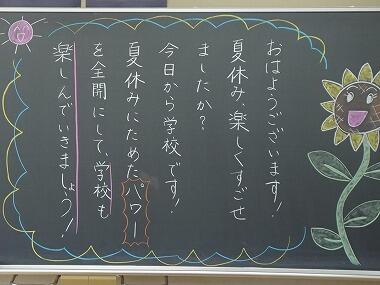 おはようございます!
夏休み、楽しくすごせ
ましたか?
今日から学校です!
夏休みにためたパワー
を全開にして、学校も
楽しんでいきましょう!